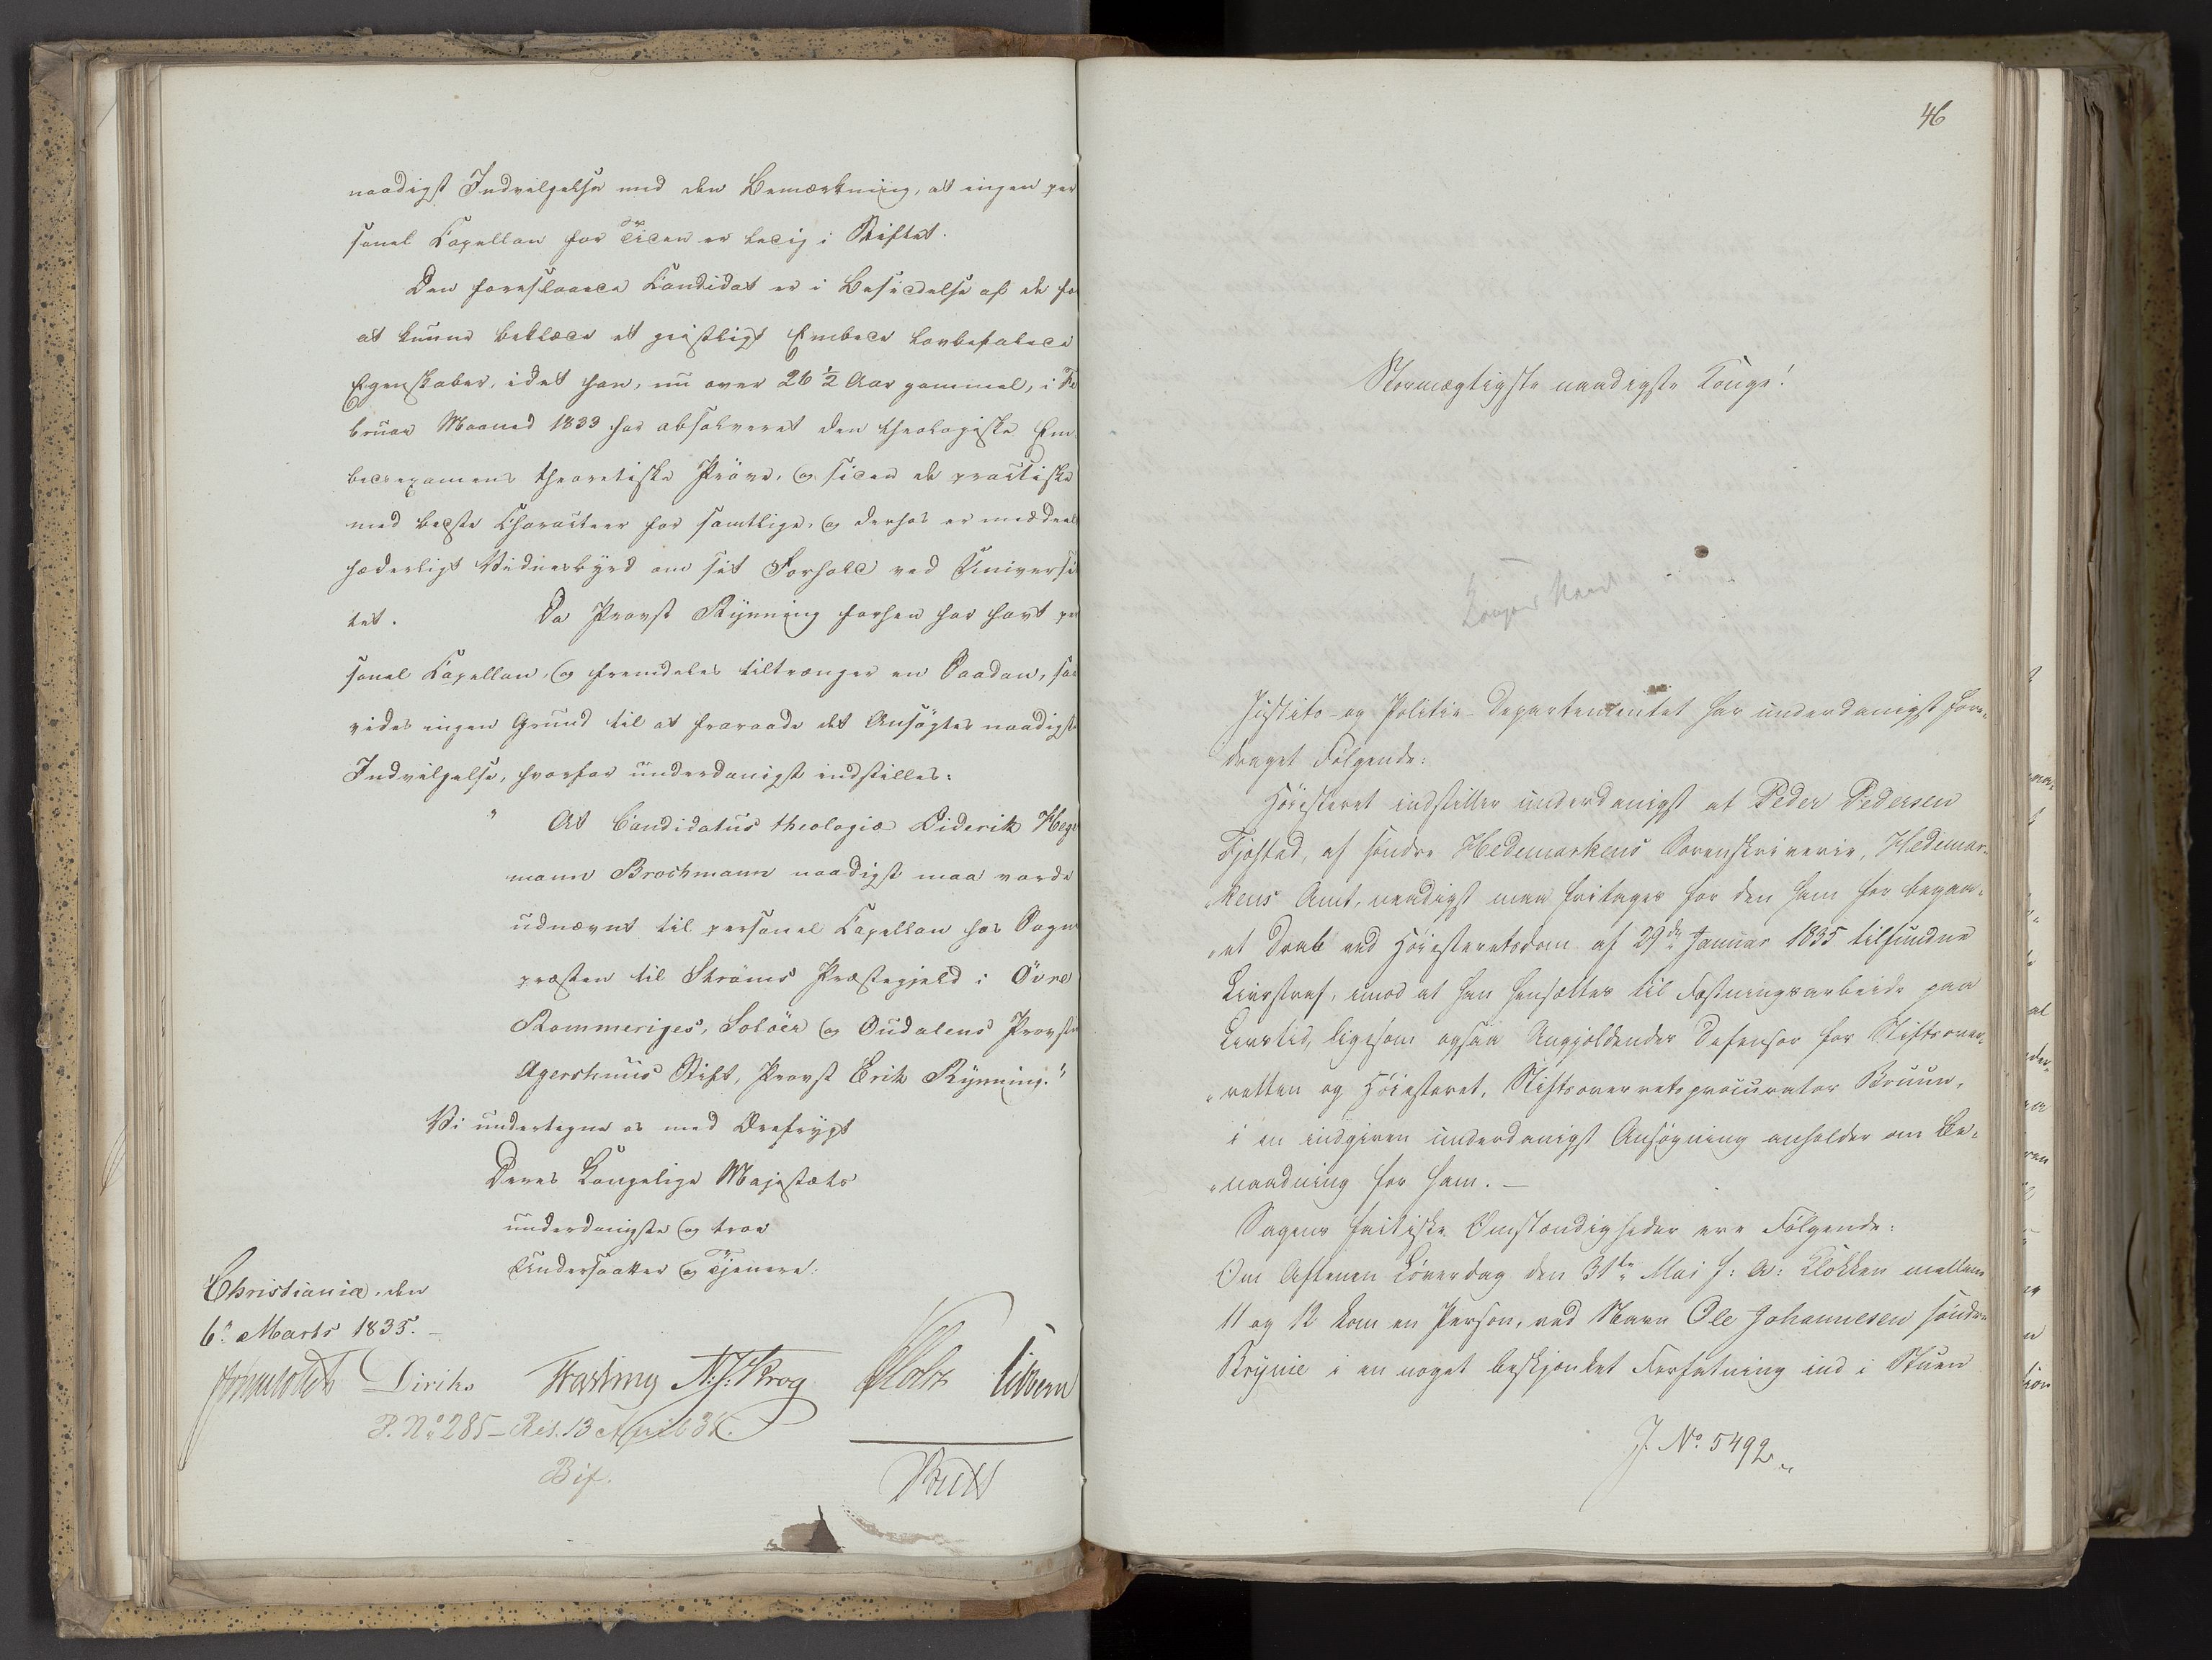 naadigst Indvilgelse med den Bemærkning, at ingen per
sonel Capellan for Tiden er ledig i Stiftet.
Den foreslaaede Candidat er i Besiddelse af de for
at kunne beklæde et geistligt Embede lovbefalede
Egenskaber, idet han, nu over 26 1/2 Aar gammel, i Fe
bruar Maaned 1833 har absolveret den theologiske Em
bedsexamens theoretiske Prøve, og siden de practiske
med bedste Characteer for samtlige, og derhos er meddeelt
hæderligt Vidnesbyrd om sit Forhold ved Universi
tet. Da Provst Rynning forhen har havt per
sonel Capellan, og fremdeles tiltrænger en Saadan, saa
vides ingen Grund til at fraraade det Ansøgtes naadigste
Indvilgelse, hvorfor underdanigst indstilles:
" At Candidatus theologiæ Diderik Hege
mann Brochmann naadigst maa vorde
udnævnt til personel Capellan hos Sogne
præsten til Strøms Præstegjeld i Øvre
Rommeriges, Soløer og Oudalens Provstie
Agershuus Stift, Provst Erik Rynning."
Vi undertegne os med Ærefrygt
Deres Kongelige Majestæts
underdanigste og troe
Undersaatter og Tjenere.
Christiania, den
6te Marts 1835.
Diriks Fasting N. J. Krog Holst Vibe
P. No 285 - Res. 13 April 35.
Bif.
46
Stormægtigste naadigste Konge!
Justits- og Politie-Departementet har underdanigst fore-
draget Følgende:
Høiesteret indstiller underdanigst at Peder Pedersen
Fjøstad, af søndre Hedemarkens Sorenskriverie, Hedemar-
"kens Amt, naadigst maa fritages for den ham for begaa-
"et Drab ved Høiesteretsdom af 29de Januar 1835 tilfundne
Livsstraf, imod at han hensættes til Fæstningsarbeide paa
Livstid, ligesom ogsaa Angjældendes Defensor for Stiftsover-
"retten og Høiesteret, Stiftsoverretsprocurator Bruun,
i en indgiven underdanigst Ansøgning anholder om Be-
"naadning for ham. —
Sagens factiske Omstændigheder ere Følgende:
Om Aftenen Løverdag den 31te Mai f: A: Klokken mellem
11 og 12 kom en Person, ved Navn Ole Johannesen søndre
Brynie i en noget beskjænket Forfatning ind i Stuen
J. No. 5492